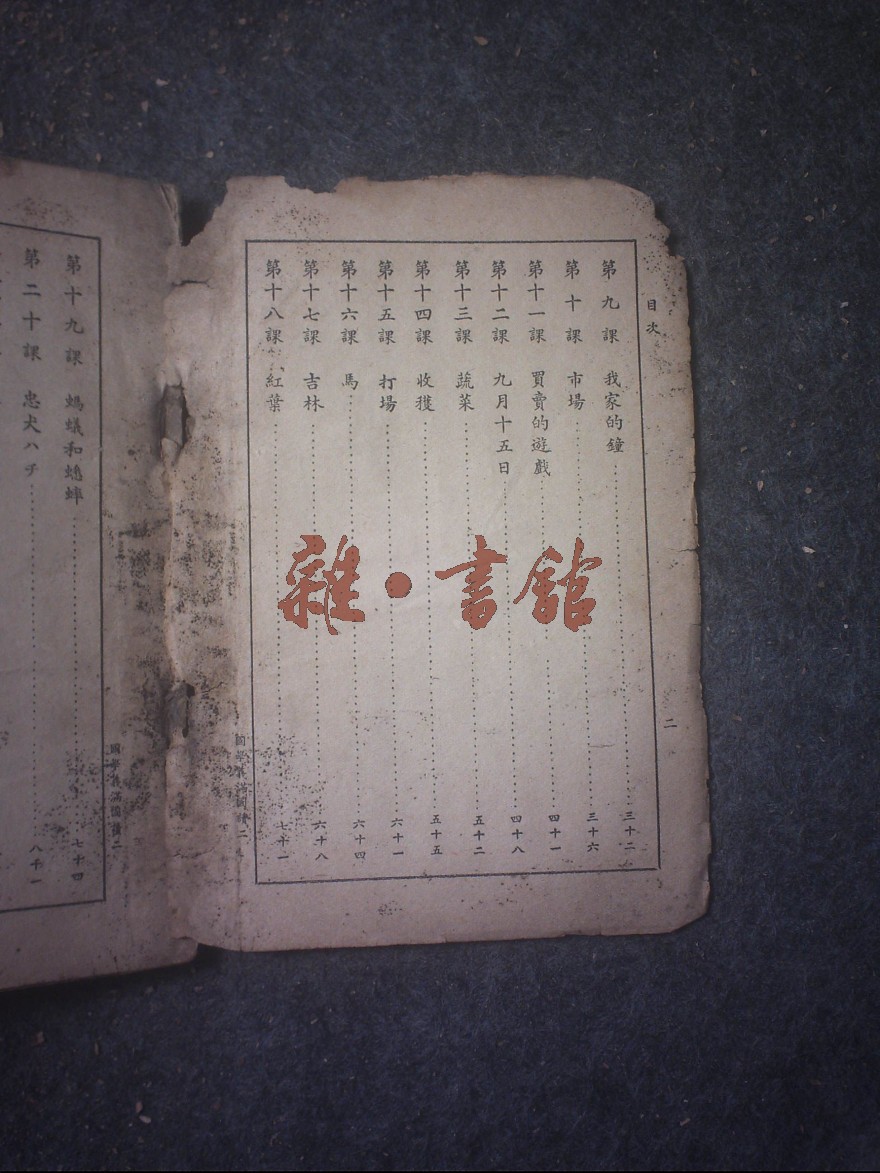 目次
二
第九課 我家的鐘 三十二
第十課 市場 三十六
第十一課 買賣的遊戲 四十一
第十二課 九月十五日 四十八
第十三課 蔬菜 五十二
第十四課 收穫 五十五
第十五課 打場 六十一
第十六課 馬 六十四
第十七課 吉林 六十八
第十八課 紅葉 七十一
第十九課 螞蟻和蟋蟀 七十四
第二十課 忠犬ハチ 八十一
雜·書館